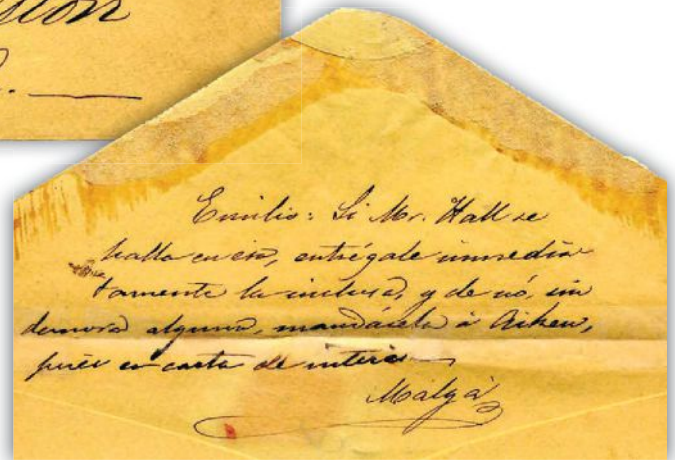 Emilio: Si Mr. Hall se
halla en esa, entrégale inmedia
tamente la inclusa, y de nó, sin
demora alguna, mandásela à Aiken,
pués es carta de interés
Malgá